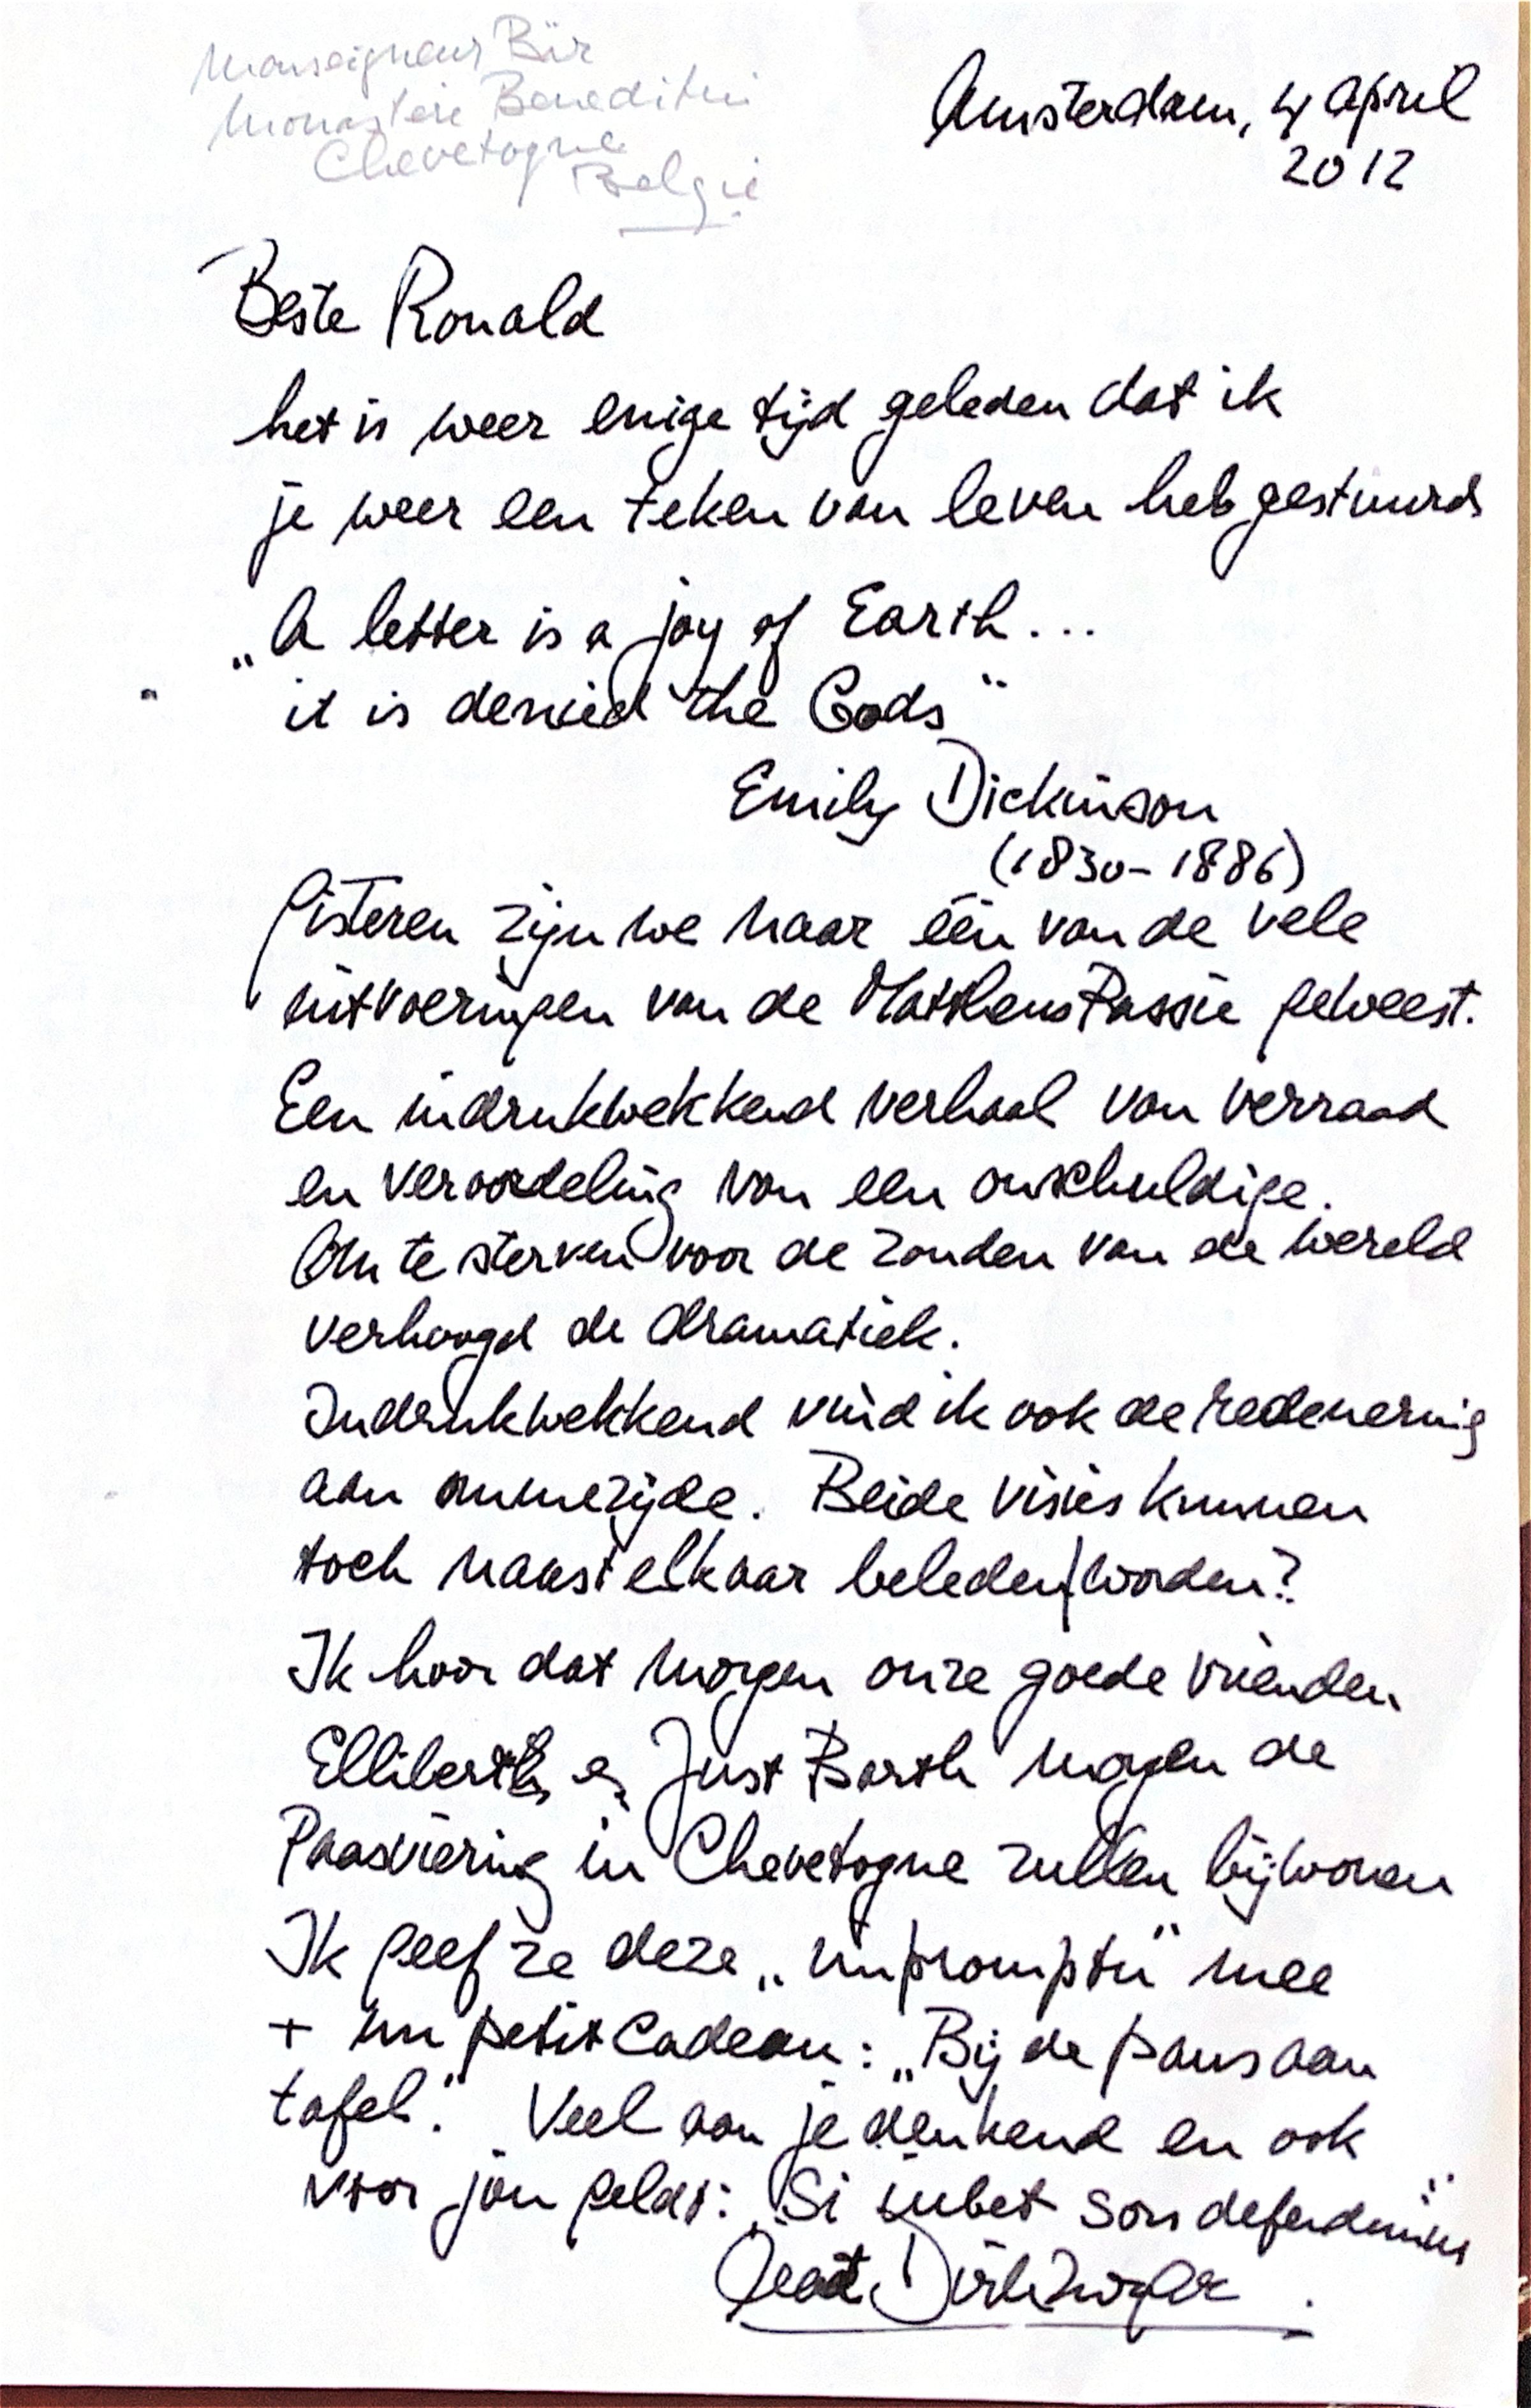 Monseigneur Bär
Monastère Benedittei
Chevetogne
België
Amsterdam, 4 april
2012
Beste Ronald
het is weer enige tijd geleden dat ik
je weer een teken van leven heb gestuurd
„A letter is a joy of Earth...
it is denied the Gods"
Emily Dickinson
(1830-1886)
Gisteren zijn we naar één van de vele
uitvoeringen van de MattheusPassie geweest.
Een indrukwekkend verhaal van verraad
en veroordeling van een onschuldige.
Om te sterven voor de zonden van de wereld
verhoogd de dramatiek.
Indrukwekkend vind ik ook de redenering
aan ommezijde. Beide visies kunnen
toch naast elkaar beleden/worden?
Ik hoor dat morgen onze goede vrienden
Elliberth en Just Barth morgen de
Paasviering in Chevetogne zullen bijwonen
Ik geef ze deze „impromptu" mee
+ un petit cadeau: „Bij de paus aan
tafel." Veel aan je denkend en ook
voor jou geldt: „Si iubet sors defendimus"
Geat